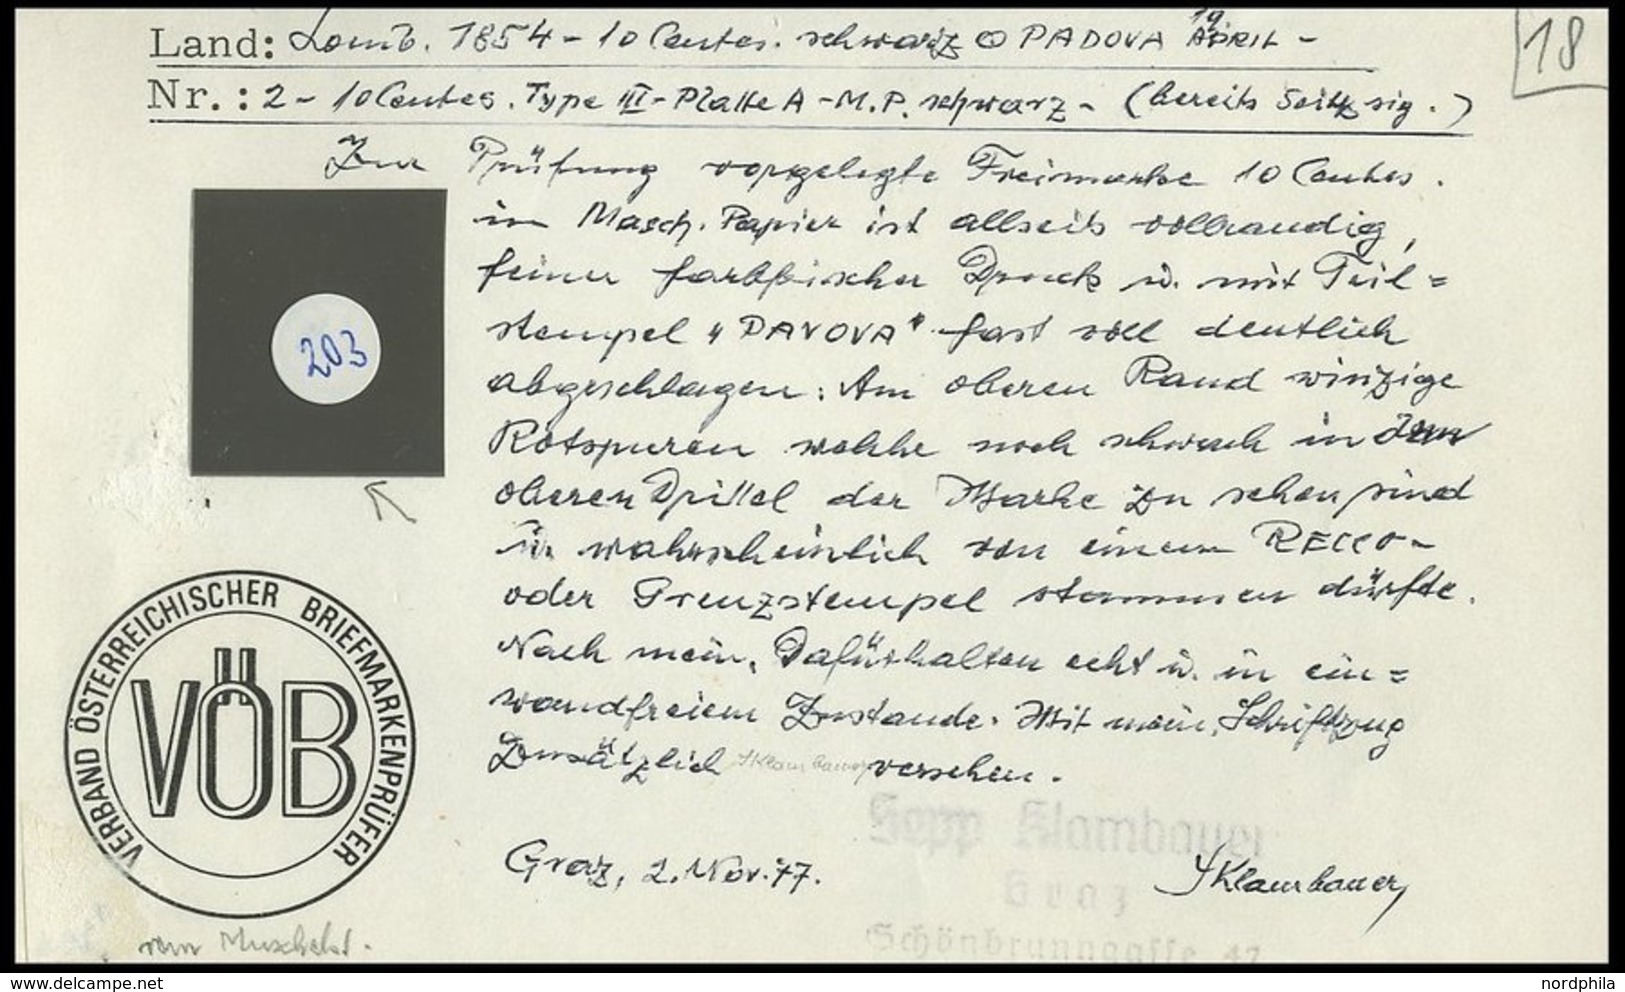 18
Land: Lomb. 1854 - 10 Centes. schwarz PADOVA 19. APRIL -
Nr.: 2 - 10 Centes. Type III - Platte A - M.P. schwarz - (bereits Seitz sig.)
Zur Prüfung vorgelegte Freimarke 10 Centes.
in Masch. Papier ist allseits vollrandig,
feiner farbfrischer Druck u. mit Teil=
stempel "PADOVA" fast voll deutlich
abgeschlagen. Am oberen Rand winzige
Rotspuren welche noch schwach in
oberen Drittel der Marke zu sehen sind
u. wahrscheinlich von einem RECCO-
oder Grenzstempel stammen dürfte.
Nach mein. Dafürhalten echt u. in ein=
wandfreiem Zustande. Mit mein. Schriftzug
Zusätzlich SKlambauer versehen.
203
VERBAND ÖSTERREICHISCHER BRIEFMARKENPRÜFER
VÖB
Graz, 2. Nov. 77.
Sepp Klambauer
Graz
Schönbrunngasse 47
SKlambauer
vom
www.stamps-dns.com
nordphila